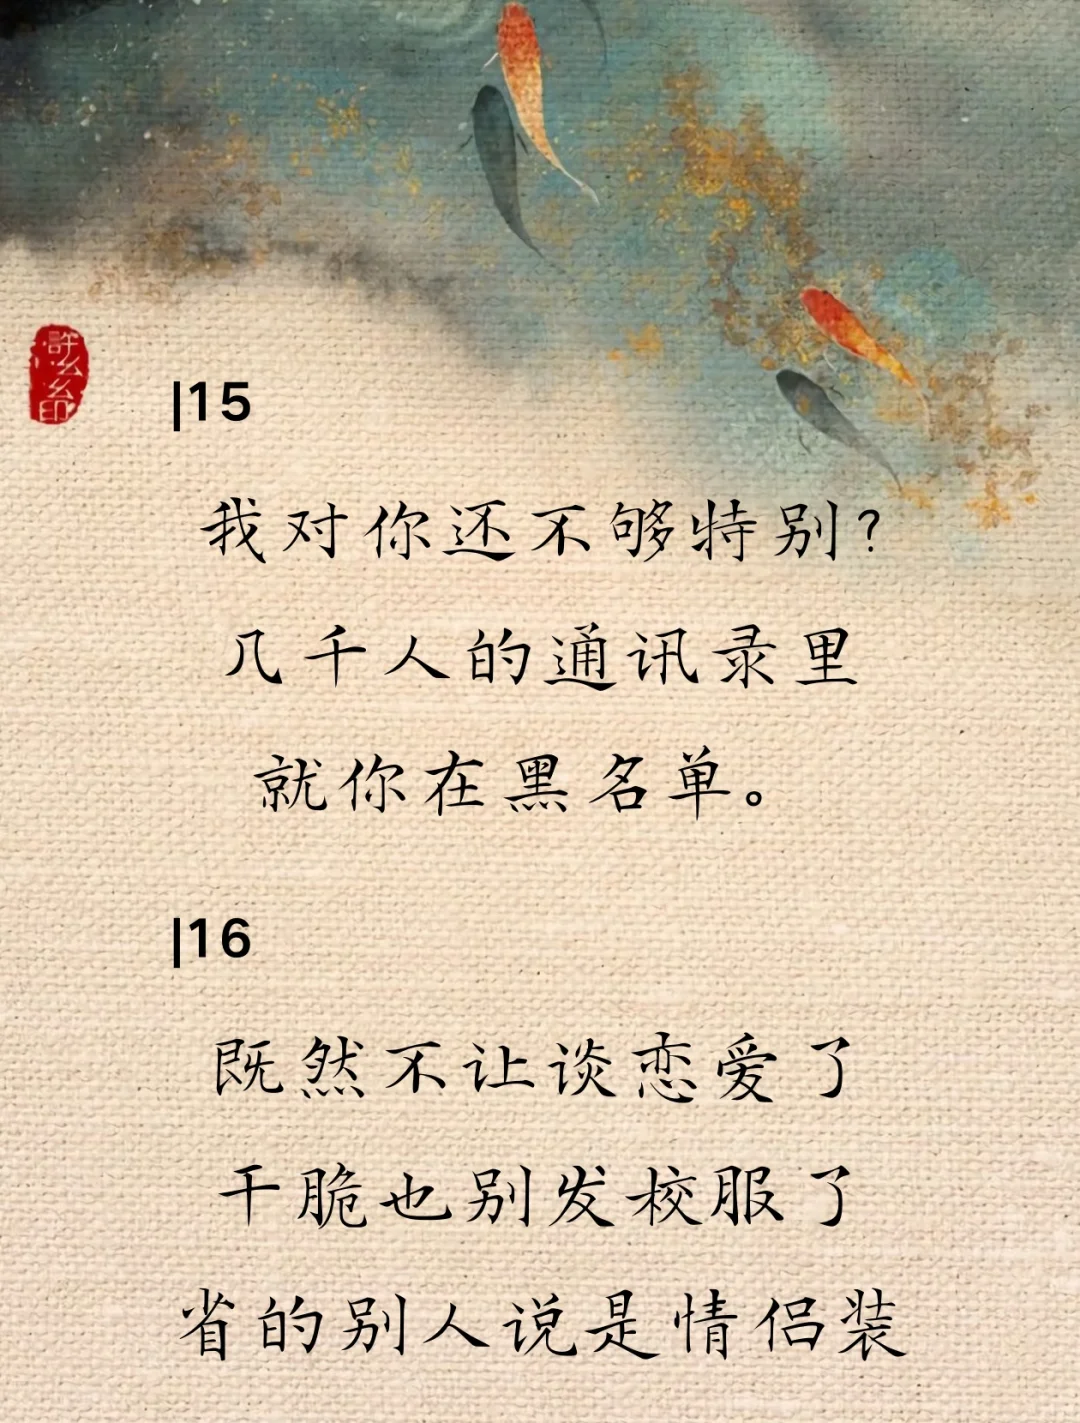 許么么印
|15
我对你还不够特别?
几千人的通讯录里
就你在黑名单。
|16
既然不让谈恋爱了
干脆也别发校服了
省的别人说是情侣装